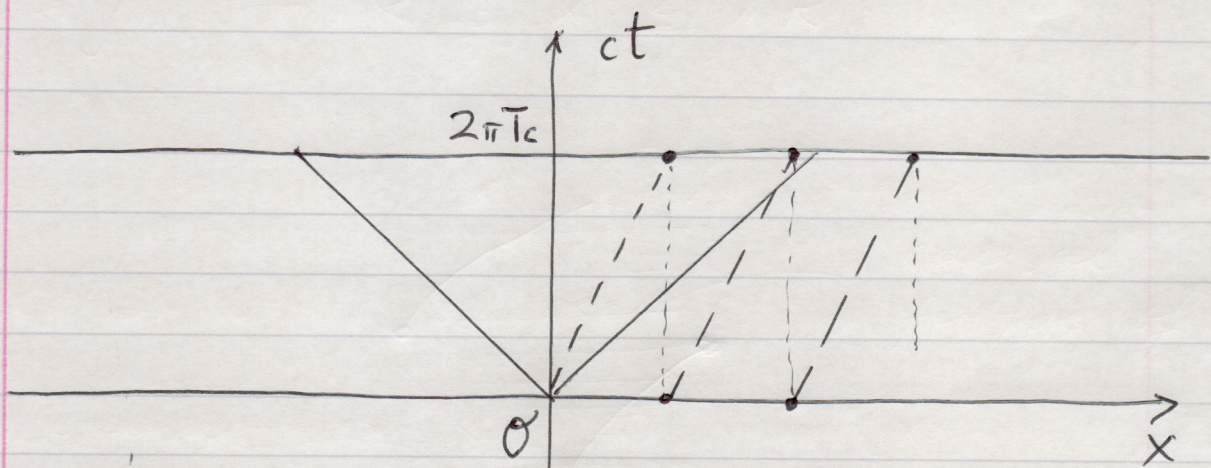 ct
2πTc
O
x